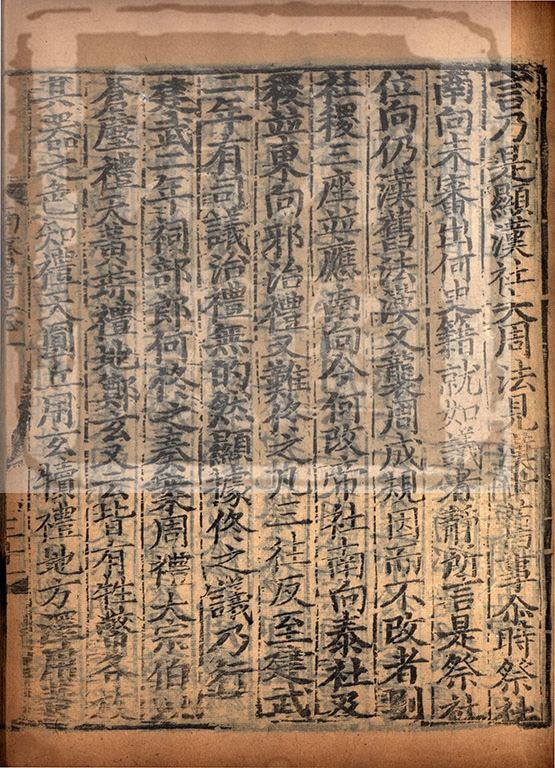 言乃是顯漢社失周法見漢世舊事尒時祭社
南向未審出何史籍就如議者靜所言是祭社
位向仍漢舊法漢又襲周成規因而不改者則
社稷三座並應南向今何改帝社南向泰社及
稷並東向邪治禮又難佟之凡三往反至建武
二年有司議治禮無的然顯據佟之議乃行
建武二年祠部郎何佟之奏案周禮大宗伯以
蒼璧禮天黃琮禮地鄭玄又云皆有牲幣各放
其器之色知禮天圓丘用玄犢禮地方澤用黃